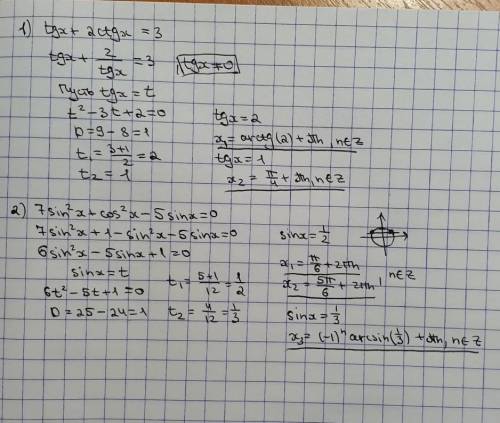 1) tgx + 2ctgx = 3
tgx + 2/tgx = 3 tgx ≠ 0
Пусть tgx = t
t² - 3t + 2 = 0
D = 9 - 8 = 1
t₁ = (3+1)/2 = 2
t₂ = 1
tgx = 2
x₁ = arctg(2) + πn, n∈Z
tgx = 1
x₂ = π/4 + πn, n∈Z
2) 7sin²x + cos²x - 5sinx = 0
7sin²x + 1 - sin²x - 5sinx = 0
6sin²x - 5sinx + 1 = 0
sinx = t
6t² - 5t + 1 = 0
D = 25 - 24 = 1
t₁ = (5+1)/12 = 1/2
t₂ = 4/12 = 1/3
sinx = 1/2
x₁ = π/6 + 2πn
x₂ = 5π/6 + 2πn, n∈Z
sinx = 1/3
x₃ = (-1)ⁿ arcsin(1/3) + πn, n∈Z